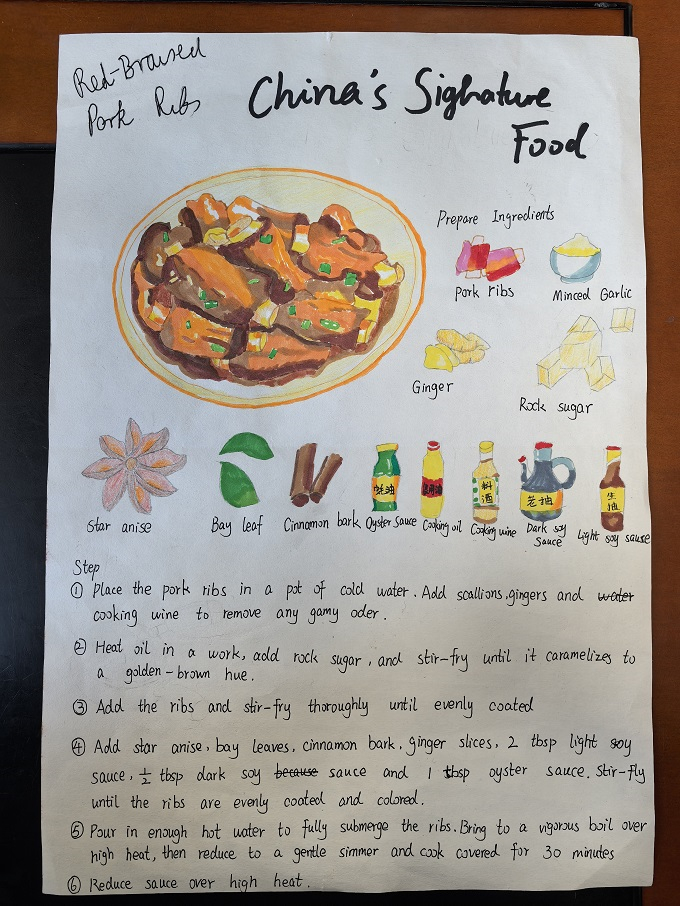 Red-Braised
Pork Ribs
China's Signature
Food
Prepare Ingredients
Pork ribs
Minced Garlic
Ginger
Rock sugar
蚝油
食用油
料酒
老抽
生抽
Star anise
Bay leaf
Cinnamon bark
Oyster Sauce
Cooking oil
Cooking wine
Dark soy
Sauce
Light soy sause
Step
① Place the pork ribs in a pot of cold water. Add scallions, gingers and water
cooking wine to remove any gamy oder.
② Heat oil in a work, add rock sugar, and stir-fry until it caramelizes to
a golden-brown hue.
③ Add the ribs and stir-fry thoroughly until evenly coated
④ Add star anise, bay leaves, cinnamon bark, ginger slices, 2 tbsp light soy
sauce, ½ tbsp dark soy because sauce and 1 tbsp oyster sauce. Stir-fly
until the ribs are evenly coated and colored.
⑤ Pour in enough hot water to fully submerge the ribs. Bring to a vigorous boil over
high heat, then reduce to a gentle simmer and cook covered for 30 minutes
⑥ Reduce sauce over high heat.